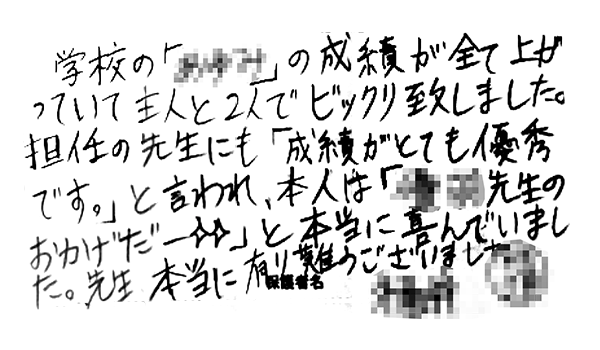 学校の「」の成績が全て上が
っていて主人と2人でビックリ致しました。
担任の先生にも「成績がとても優秀
です。」と言われ、本人は「先生の
おかげだー✧✧」と本当に喜んでいまし
た。先生 本当に有り難うございました
保護者名